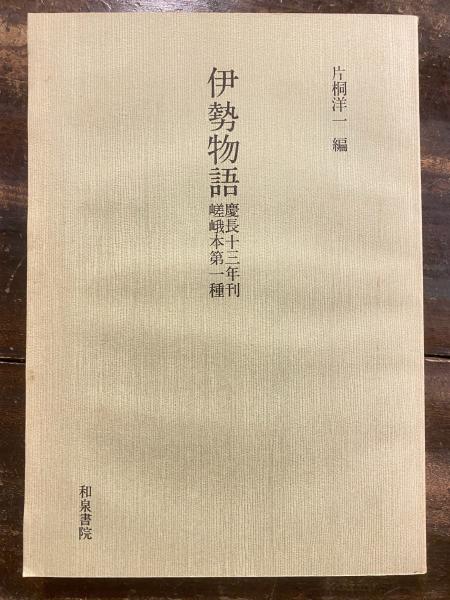 片桐洋一 編
伊勢物語
慶長十三年刊
嵯峨本第一種
和泉書院